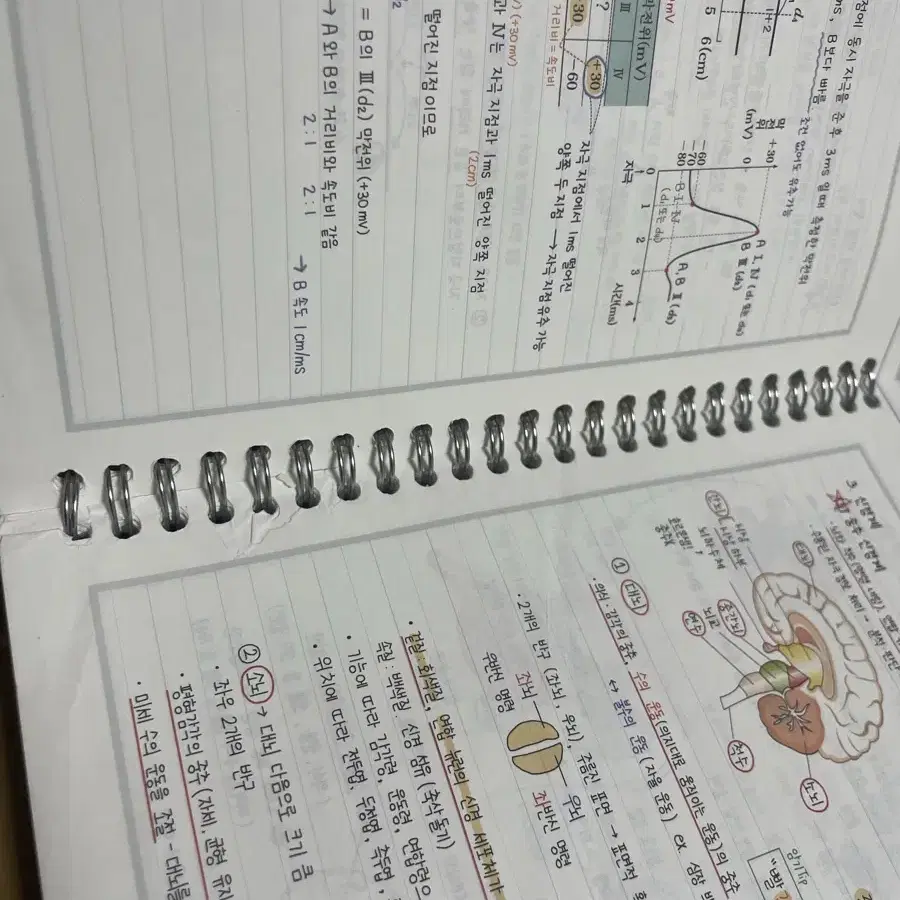 점에 동시 자극을 준 후 3ms 일때 측정한 막전위
ms, B보다 빠름. 조건 없어도 유추 가능
d₁
1+2
5 6(cm)
mV
막전위(mV)
Ⅲ Ⅳ
?
+30 +30
-60
거리비 = 속도비
막전위
(mV)
+30
0
-60
-70
-80
자극
0 1 2 3 4
시간(ms)
A Ⅰ, Ⅳ
B Ⅲ (d₂)
A, B Ⅱ
B Ⅰ, Ⅳ
자극 지점에서 1ms 떨어진
양쪽 두 지점 → 자극 지점 유추 가능
(+30mV)
과 Ⅳ는 자극 지점과 1ms 떨어진 양쪽 지점
(2cm)
떨어진 지점이므로
= B의 Ⅲ(d₂) 막전위 (+30mV)
→ A와 B의 거리비와 속도비 같음
2:1 2:1
→ B 속도 1cm/ms
3. 신경계
중추 신경계
대뇌
간뇌
시상
시상하부
뇌하수체
중간뇌
뇌교
연수
척수
소뇌
암기Tip
① 대뇌
· 의식·감각의 중추, 수의 운동(의지대로 움직이는 운동)의 중추
↔ 불수의 운동 (자율 운동) ex. 심장
· 2개의 반구 (좌뇌, 우뇌), 주름진 표면 → 표면적
좌뇌 우뇌
우반신 명령 좌반신 명령
· 겉질: 회색질, 연합 뉴런의 신경 세포체가
속질: 백색질, 신경 섬유 (축삭 돌기)
· 기능에 따라 감각령, 운동령, 연합령으
· 위치에 따라 전두엽, 두정엽, 측두엽,
② 소뇌 → 대뇌 다음으로 크기 큼
· 좌우 2개의 반구
· 평형감각의 중추 (자세, 균형 유지
· 미세 수의 운동을 조절 - 대뇌를